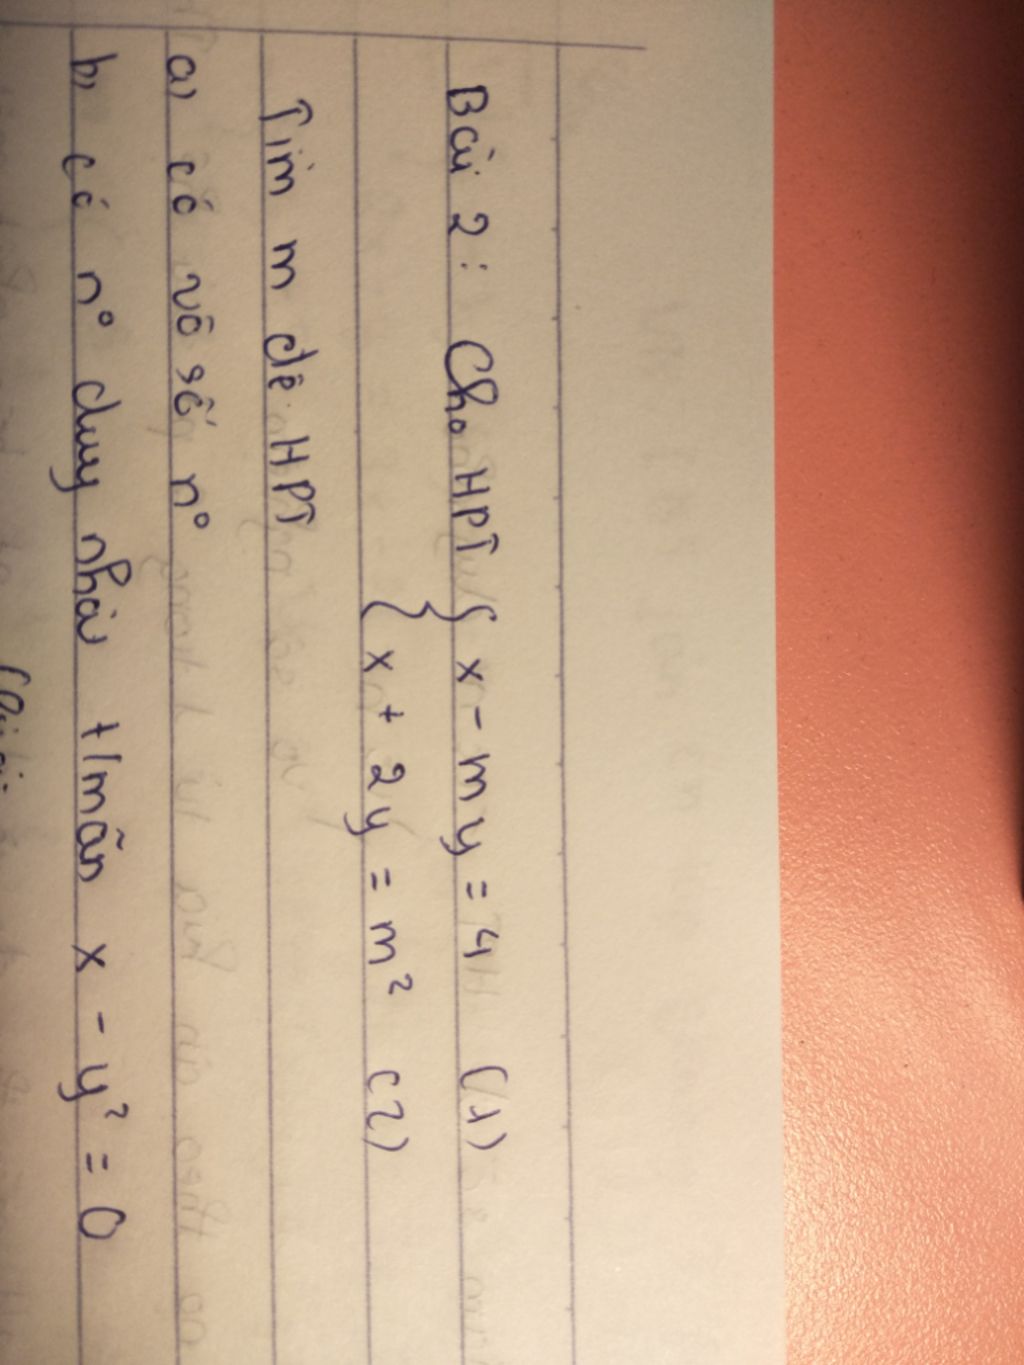 Bài 2: Cho HPT { x - my = 4 (1)
{ x + 2y = m² (2)
Tìm m để HPT
a) có vô số n°
b) có n° duy nhất t/mãn x - y² = 0